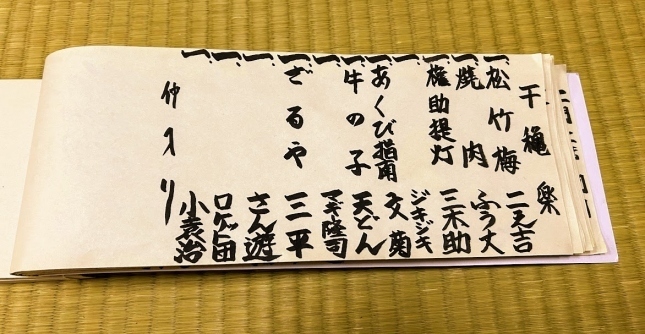 千穐楽
一、松竹梅 二之吉
一、焼肉 ふう丈
一、権助提灯 三木助
一、 ジキジキ
一、あくび指南 文菊
一、牛の子 天どん
一、 マギー隆司
一、ざるや 三平
一、 さん遊
一、 ロケット団
一、 小袁治
仲入り